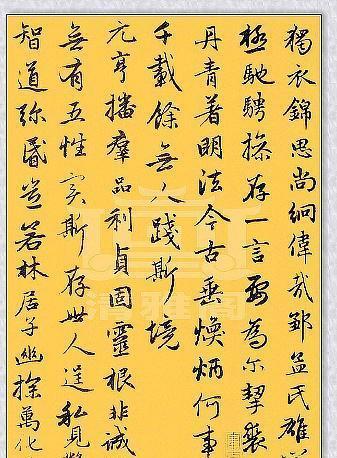 獨衣錦思尚絅偉哉鄒孟氏雄
極馳騁操存一言要為尔挈裘
丹青著明法今古垂煥炳何事
千載餘無人踐斯境
元亨播羣品利貞固靈根非誠
無有五性實斯存世人逞私見
智道弥昏豈若林居子幽探萬化
清雅阁